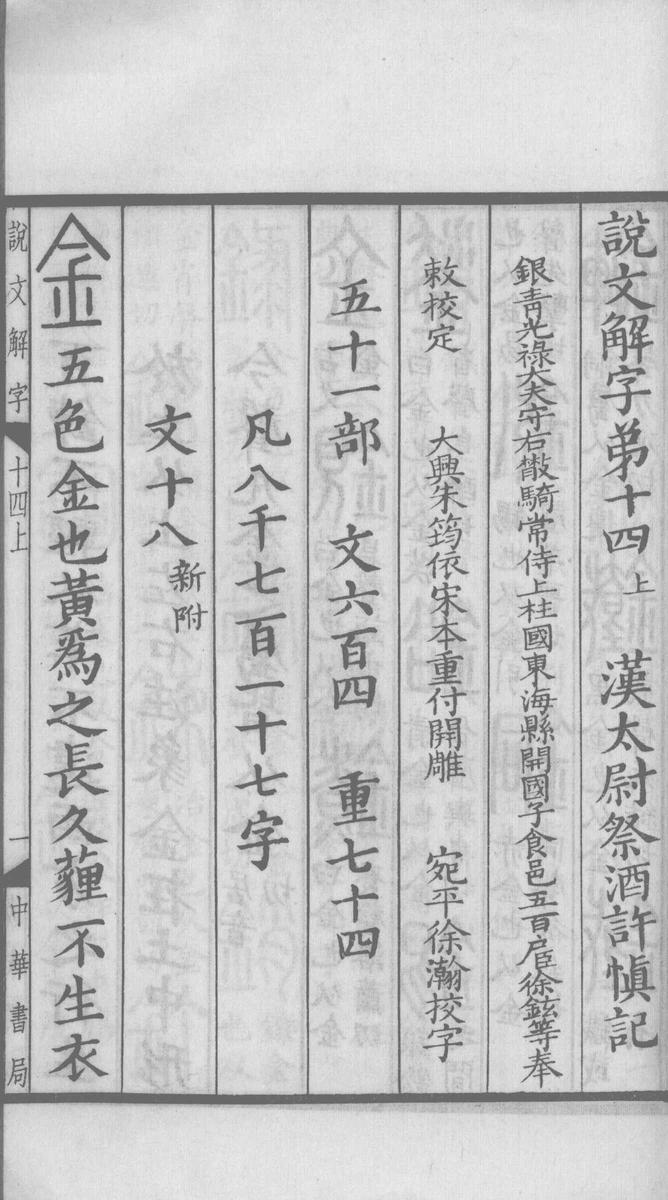 說文解字弟十四上 漢太尉祭酒許慎記
銀青光祿大夫守右散騎常侍上柱國東海縣開國子食邑五百戶臣徐鉉等奉
敕校定 大興朱筠依宋本重付開雕 宛平徐瀚校字
五十一部 文六百四 重七十四
凡八千七百一十七字
文十八新附
金五色金也黃爲之長久薶不生衣
說文解字 十四上 一 中華書局